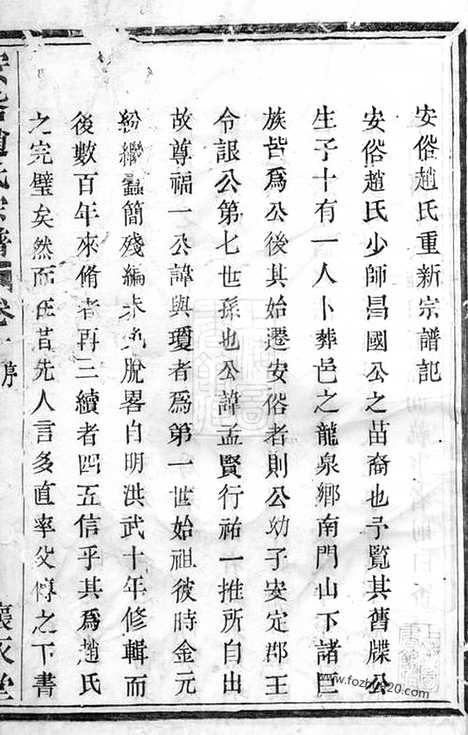 安俗趙氏重新宗譜記
安俗趙氏少師昌國公之苗裔也予覽其舊牒公
生子十有一人卜葬邑之龍泉鄉南門山下諸巨
族皆爲公後其始遷安俗者則公幼子安定郡王
令詪公第七世孫也公諱孟賢行祐一推所自出
故尊福一公諱與瓊者爲第一世始祖彼時金元
紛繼蠹簡殘編未免脫畧自明洪武十年修輯而
後數百年來脩者再三續者四五信乎其爲趙氏
之完璧矣然而在昔先人言多直率攵傳之下書
安俗趙氏宗譜 卷一 序 懷永堂
www.fozhu920.com